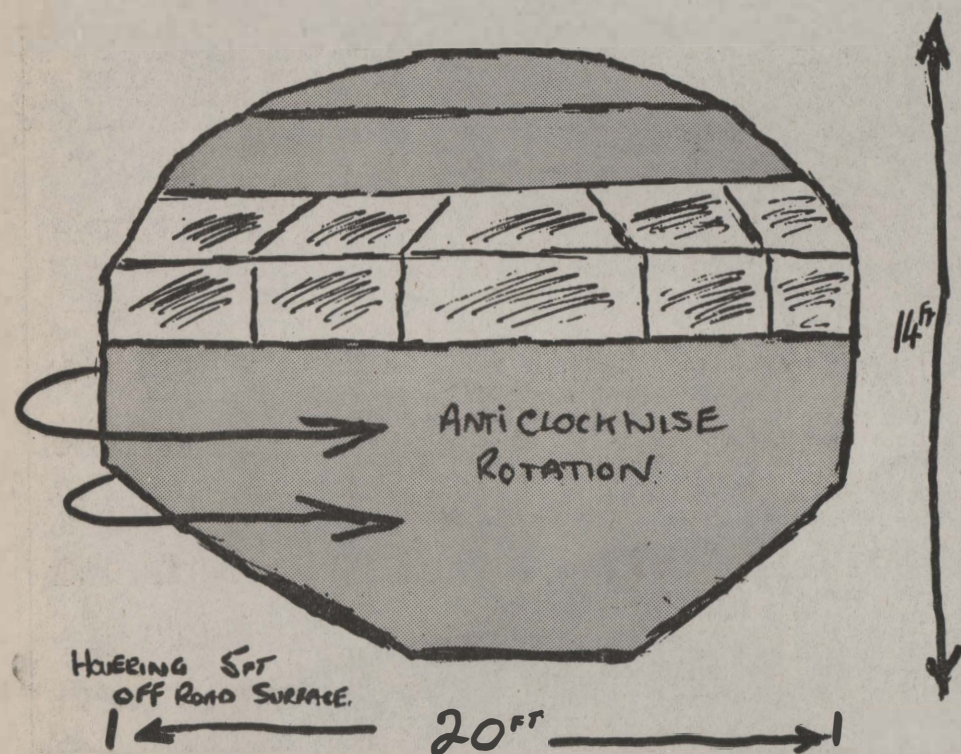 14FT
ANTiCLOCKWISE
ROTATION.
HOVERING 5FT
OFF ROAD SURFACE.
20FT